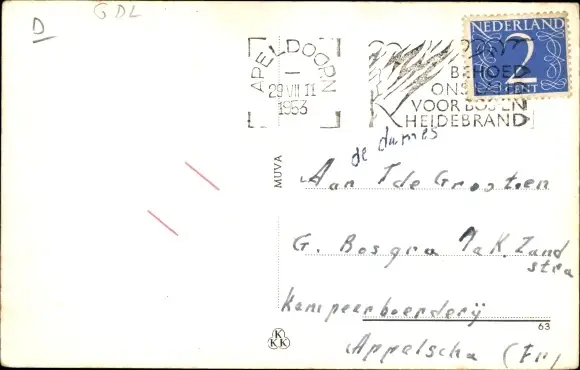 D
GDL
APELDOORN
29 VII 11
1953
BEHOED
ONS LAND
VOOR BOS EN
HEIDEBRAND
NEDERLAND
2
CENT
MUVA
de dames
Aan T de Groot en
G. Bosgra p/a K. Zand
stra
Kampeerboerderij
63
Appelscha (Fr)
KKK